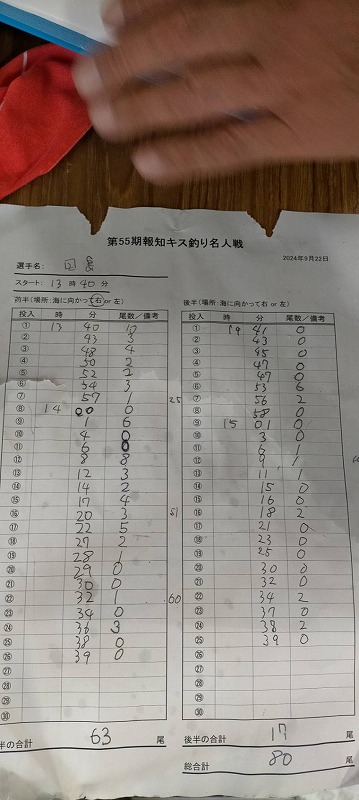 第55期報知キス釣り名人戦
2024年9月22日
選手名:
スタート: 13 時 40 分
前半(場所:海に向かって右 or 左)
投入 時 分 尾数/備考
① 13 40 10
② 43 3
③ 48 4
④ 50 2
⑤ 52 2
⑥ 54 3
⑦ 57 1 25
⑧ 14 00 0
⑨ 1 6
⑩ 4 0
⑪ 6 0
⑫ 8 8
⑬ 12 3
⑭ 14 2
⑮ 17 4
⑯ 20 3 51
⑰ 22 5
⑱ 27 2
⑲ 28 1
⑳ 29 0
㉑ 30 0
㉒ 32 1 60
㉓ 34 0
㉔ 36 3
㉕ 38 0
㉖ 39 0
㉗
㉘
㉙
㉚
半の合計 63 尾
後半(場所:海に向かって右 or 左)
投入 時 分 尾数/備考
① 14 41 0
② 43 0
③ 45 0
④ 47 0
⑤ 47 0
⑥ 53 6
⑦ 56 2
⑧ 58 0
⑨ 15 01 0
⑩ 3 0
⑪ 6 1
⑫ 9 1
⑬ 11 1
⑭ 15 0
⑮ 16 0
⑯ 18 2
⑰ 21 0
⑱ 23 0
⑲ 25 0
⑳ 30 0
㉑ 32 0
㉒ 34 2
㉓ 37 0
㉔ 38 2
㉕ 39 0
㉖
㉗
㉘
㉙
㉚
後半の合計 17 尾
総合計 80 尾